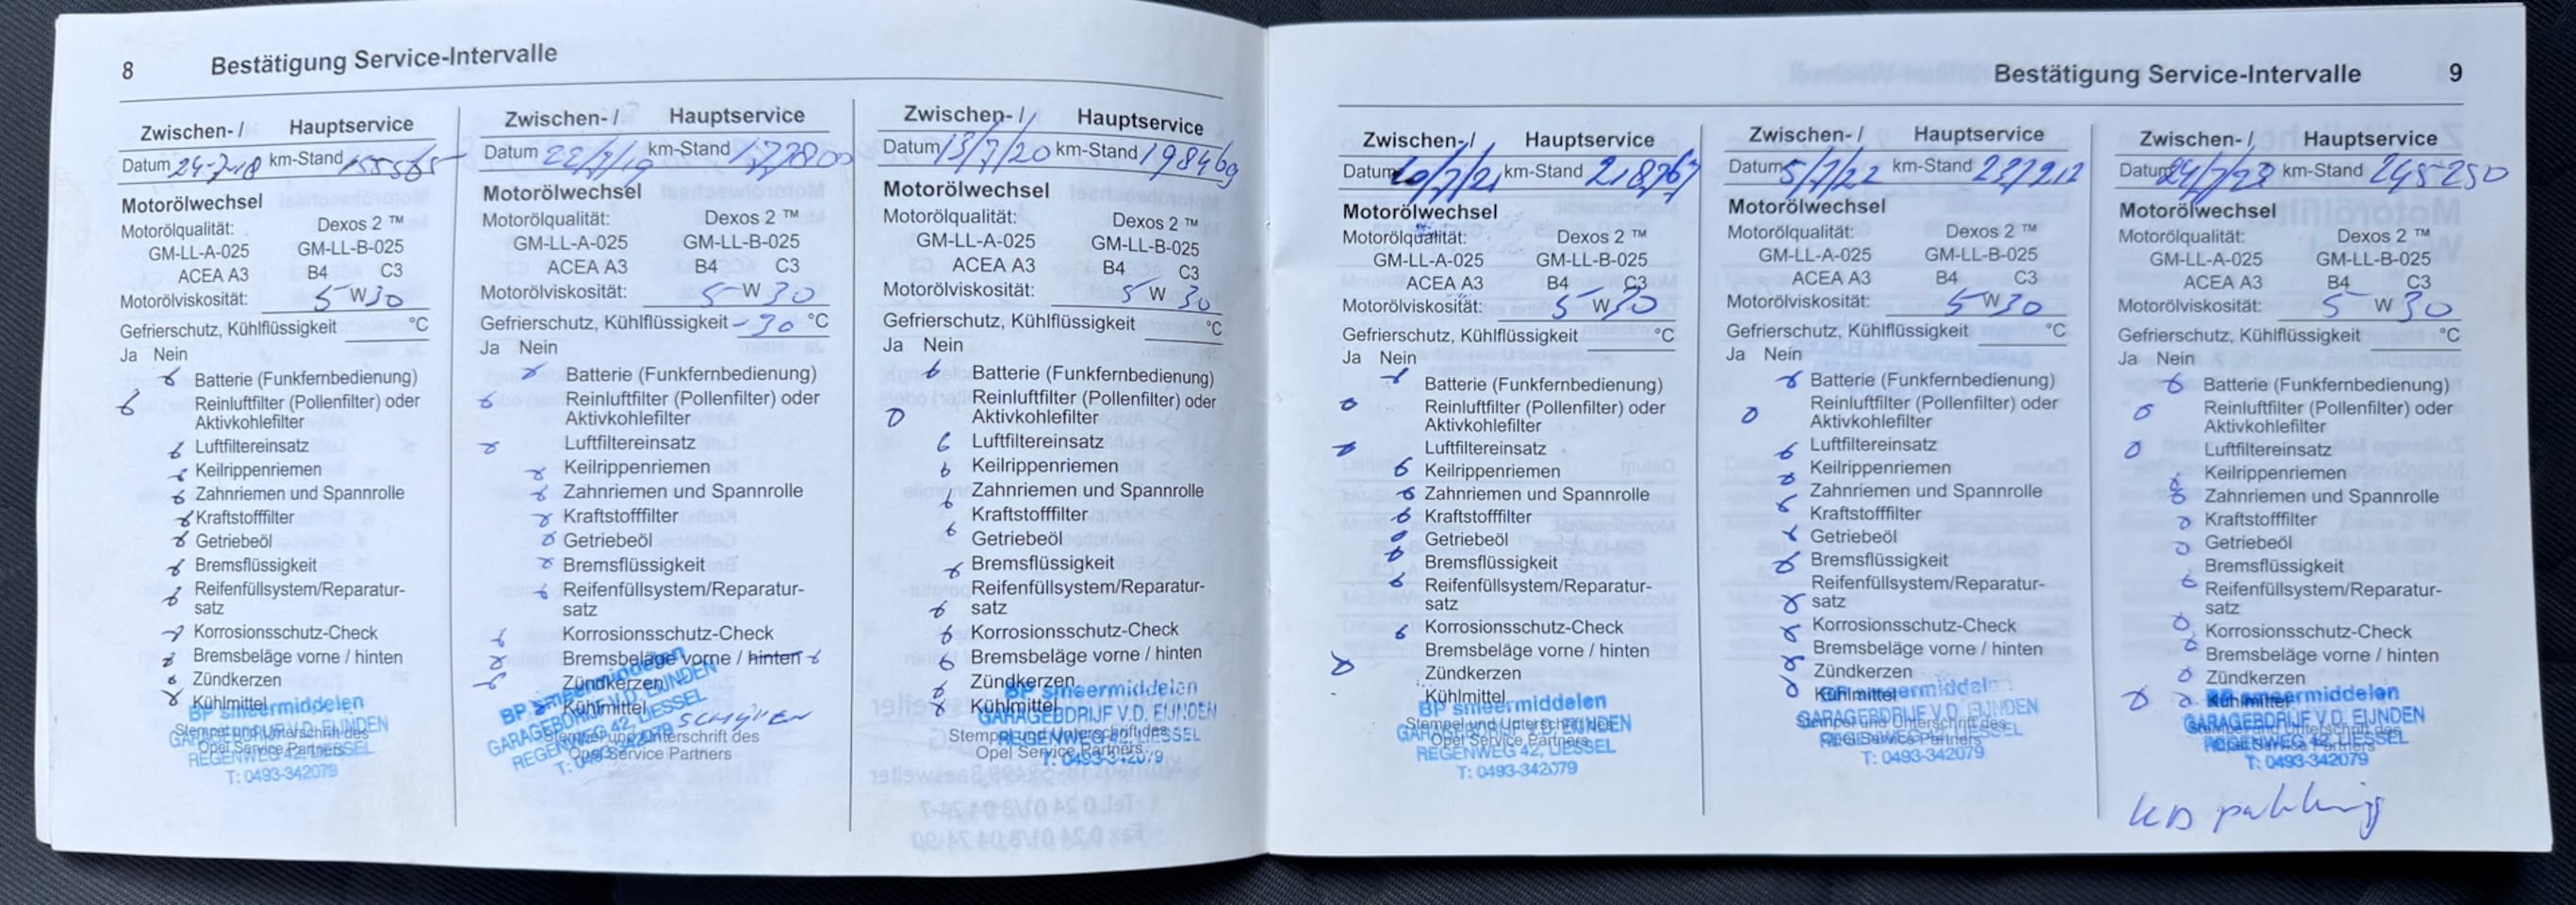 8 Bestätigung Service-Intervalle
Zwischen- / Hauptservice
Datum 24-7-18 km-Stand 155565
Motorölwechsel
Motorölqualität: Dexos 2 ™
GM-LL-A-025 GM-LL-B-025
ACEA A3 B4 C3
Motorölviskosität: 5 W 30
Gefrierschutz, Kühlflüssigkeit °C
Ja Nein
Batterie (Funkfernbedienung)
Reinluftfilter (Pollenfilter) oder
Aktivkohlefilter
Luftfiltereinsatz
Keilrippenriemen
Zahnriemen und Spannrolle
Kraftstofffilter
Getriebeöl
Bremsflüssigkeit
Reifenfüllsystem/Reparatur-
satz
Korrosionsschutz-Check
Bremsbeläge vorne / hinten
Zündkerzen
Kühlmittel
BP smeermiddelen
Stempel und Unterschrift des
GARAGEBDRIJF V.D. EIJNDEN
Opel Service Partners
REGENWEG 42, LIESSEL
T: 0493-342079
Zwischen- / Hauptservice
Datum 22/7/19 km-Stand 177800
Motorölwechsel
Motorölqualität: Dexos 2 ™
GM-LL-A-025 GM-LL-B-025
ACEA A3 B4 C3
Motorölviskosität: 5 W 30
Gefrierschutz, Kühlflüssigkeit -30 °C
Ja Nein
Batterie (Funkfernbedienung)
Reinluftfilter (Pollenfilter) oder
Aktivkohlefilter
Luftfiltereinsatz
Keilrippenriemen
Zahnriemen und Spannrolle
Kraftstofffilter
Getriebeöl
Bremsflüssigkeit
Reifenfüllsystem/Reparatur-
satz
Korrosionsschutz-Check
Bremsbeläge vorne / hinten
Zündkerzen
Kühlmittel
BP smeermiddelen
GARAGEBDRIJF V.D. EIJNDEN
REGENWEG 42, LIESSEL
T: 0493-342079
Stempel und Unterschrift des
Opel Service Partners
Zwischen- / Hauptservice
Datum 13/7/20 km-Stand 198469
Motorölwechsel
Motorölqualität: Dexos 2 ™
GM-LL-A-025 GM-LL-B-025
ACEA A3 B4 C3
Motorölviskosität: 5 W 30
Gefrierschutz, Kühlflüssigkeit °C
Ja Nein
Batterie (Funkfernbedienung)
Reinluftfilter (Pollenfilter) oder
Aktivkohlefilter
Luftfiltereinsatz
Keilrippenriemen
Zahnriemen und Spannrolle
Kraftstofffilter
Getriebeöl
Bremsflüssigkeit
Reifenfüllsystem/Reparatur-
satz
Korrosionsschutz-Check
Bremsbeläge vorne / hinten
Zündkerzen
BP smeermiddelen
Kühlmittel
GARAGEBDRIJF V.D. EIJNDEN
Stempel und Unterschrift des
REGENWEG 42, LIESSEL
Opel Service Partners
T: 0493-342079
Bestätigung Service-Intervalle 9
Zwischen- / Hauptservice
Datum /7/21 km-Stand 218767
Motorölwechsel
Motorölqualität: Dexos 2 ™
GM-LL-A-025 GM-LL-B-025
ACEA A3 B4 C3
Motorölviskosität: 5 W 30
Gefrierschutz, Kühlflüssigkeit °C
Ja Nein
Batterie (Funkfernbedienung)
Reinluftfilter (Pollenfilter) oder
Aktivkohlefilter
Luftfiltereinsatz
Keilrippenriemen
Zahnriemen und Spannrolle
Kraftstofffilter
Getriebeöl
Bremsflüssigkeit
Reifenfüllsystem/Reparatur-
satz
Korrosionsschutz-Check
Bremsbeläge vorne / hinten
Zündkerzen
Kühlmittel
BP smeermiddelen
Stempel und Unterschrift des
GARAGEBDRIJF V.D. EIJNDEN
Opel Service Partners
REGENWEG 42, LIESSEL
T: 0493-342079
Zwischen- / Hauptservice
Datum 5/7/22 km-Stand 237212
Motorölwechsel
Motorölqualität: Dexos 2 ™
GM-LL-A-025 GM-LL-B-025
ACEA A3 B4 C3
Motorölviskosität: 5 W 30
Gefrierschutz, Kühlflüssigkeit °C
Ja Nein
Batterie (Funkfernbedienung)
Reinluftfilter (Pollenfilter) oder
Aktivkohlefilter
Luftfiltereinsatz
Keilrippenriemen
Zahnriemen und Spannrolle
Kraftstofffilter
Getriebeöl
Bremsflüssigkeit
Reifenfüllsystem/Reparatur-
satz
Korrosionsschutz-Check
Bremsbeläge vorne / hinten
Zündkerzen
Kühlmittel
BP smeermiddelen
GARAGEBDRIJF V.D. EIJNDEN
Stempel und Unterschrift des
REGENWEG 42, LIESSEL
Opel Service Partners
T: 0493-342079
Zwischen- / Hauptservice
Datum 24/7/23 km-Stand 245250
Motorölwechsel
Motorölqualität: Dexos 2 ™
GM-LL-A-025 GM-LL-B-025
ACEA A3 B4 C3
Motorölviskosität: 5 W 30
Gefrierschutz, Kühlflüssigkeit °C
Ja Nein
Batterie (Funkfernbedienung)
Reinluftfilter (Pollenfilter) oder
Aktivkohlefilter
Luftfiltereinsatz
Keilrippenriemen
Zahnriemen und Spannrolle
Kraftstofffilter
Getriebeöl
Bremsflüssigkeit
Reifenfüllsystem/Reparatur-
satz
Korrosionsschutz-Check
Bremsbeläge vorne / hinten
Zündkerzen
Kühlmittel
BP smeermiddelen
GARAGEBDRIJF V.D. EIJNDEN
Stempel und Unterschrift des
REGENWEG 42, LIESSEL
Opel Service Partners
T: 0493-342079